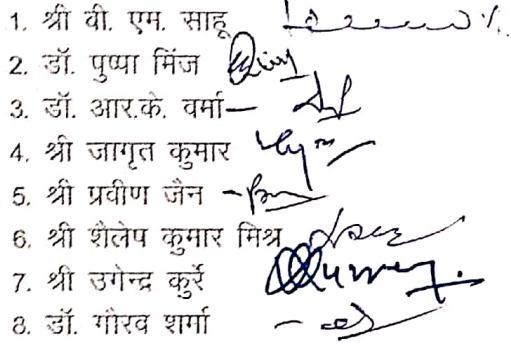 1. श्री वी. एम. साहू
2. डॉ. पुष्पा मिंज
3. डॉ. आर.के. वर्मा–
4. श्री जागृत कुमार
5. श्री प्रवीण जैन
6. श्री शैलेष कुमार मिश्र
7. श्री उगेन्द्र कुर्रे
8. डॉ. गौरव शर्मा